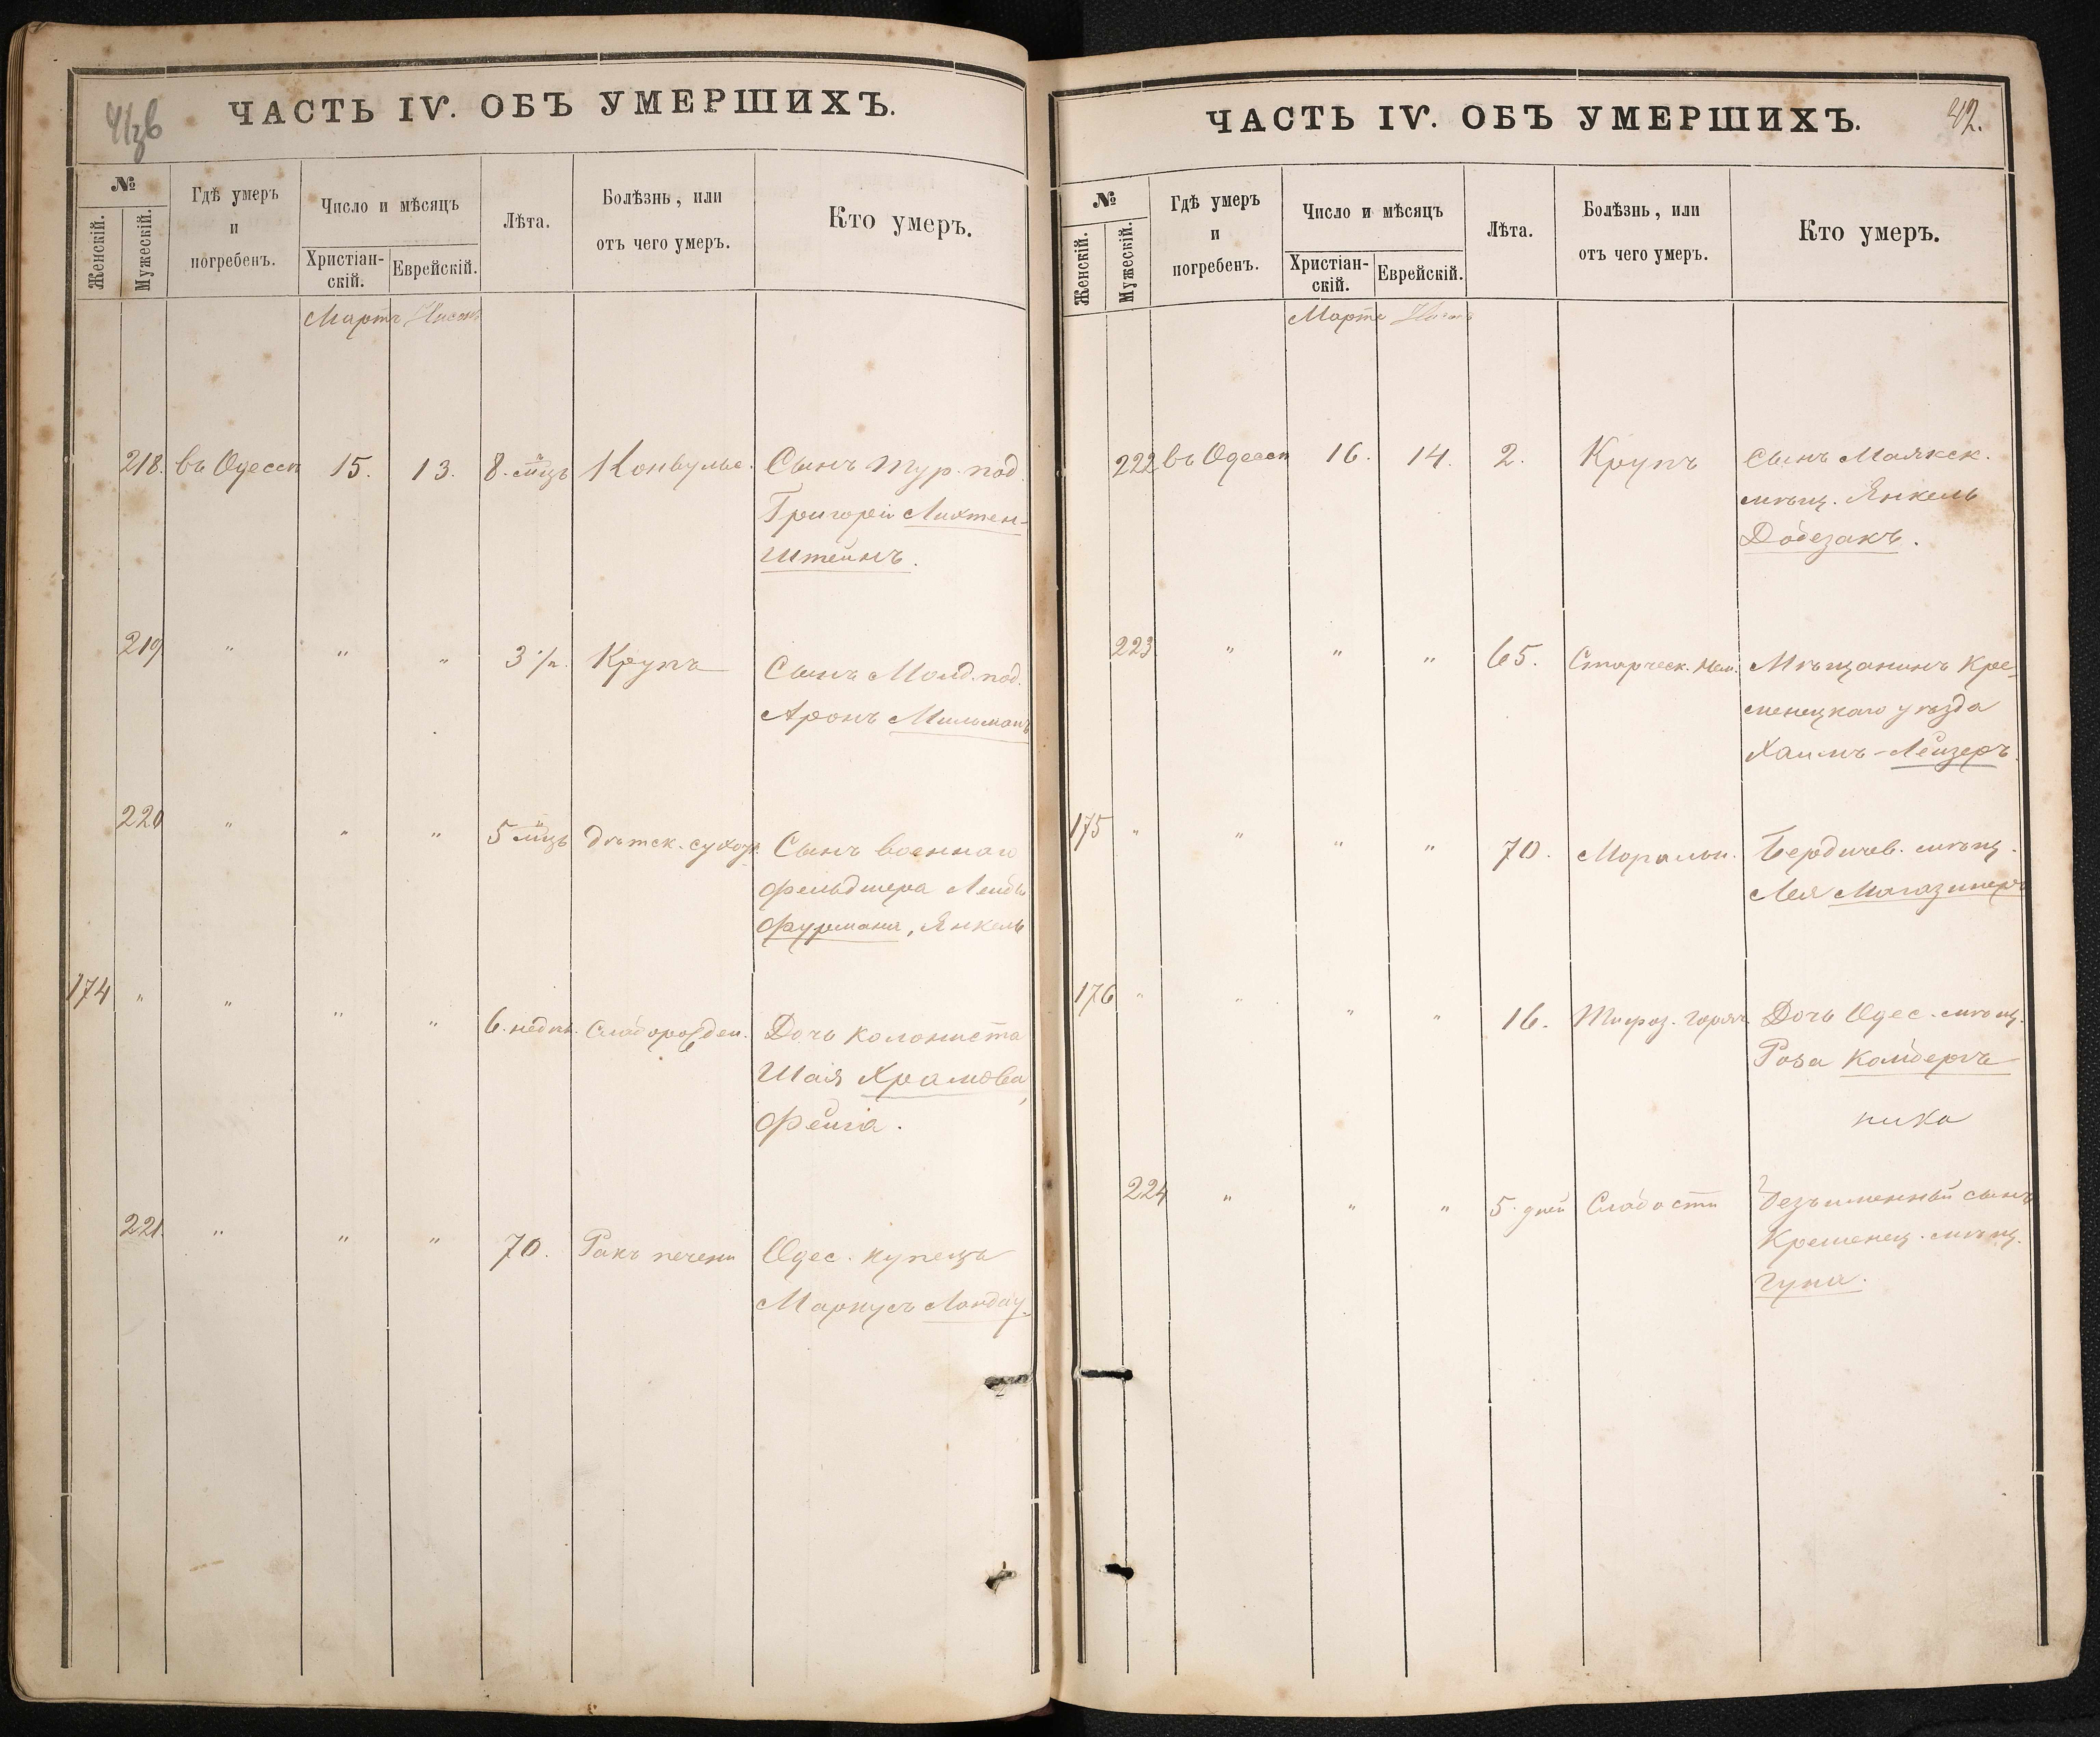 41зв
ЧАСТЬ IV. ОБЪ УМЕРШИХЪ.
№
Женскій.
Мужескій.
Гдѣ умеръ
и
погребенъ.
Число и мѣсяцъ
Христіан-
скій.
Еврейскій.
Лѣта.
Болѣзнь, или
отъ чего умеръ.
Кто умеръ.
Мартъ Нисонъ
218. въ Одессѣ 15. 13. 8. мѣц Конвульс. Сынъ Тур. под.
Григорій Лихтен-
штейнъ.
219 " " " 3 1/2. Крупъ Сынъ Молд. под.
Аронъ Мильманъ
220 " " " 5 мѣц Дѣтск. сухот. Сынъ военнаго
фельдшера Лейбы
Фурмана, Янкель
174 " " " " 6. недѣл. Слаборожден. Дочь колониста
Шая Храмова,
Фейга.
221. " " " 70. Ракъ печени Одес. купецъ
Маркусъ Ландау.
42.
ЧАСТЬ IV. ОБЪ УМЕРШИХЪ.
№
Женскій.
Мужескій.
Гдѣ умеръ
и
погребенъ.
Число и мѣсяцъ
Христіан-
скій.
Еврейскій.
Лѣта.
Болѣзнь, или
отъ чего умеръ.
Кто умеръ.
Мартъ Нисонъ
222 въ Одессѣ 16. 14. 2. Крупъ Сынъ Маякск.
мѣщ. Янкель
Добезакъ.
223 " " " 65. Старческ. Мѣщанинъ Кре-
менецкаго уѣзда
Хаимъ-Лейзеръ.
175 " " " " 70. Бердичев. мѣщ.
Лея Магазинеръ
176 " " " " 16. Тифоз. горяч. Дочь Одес. мѣщ.
Роза
ника
224 " " " 5. дней Слабости Безъименный сынъ
Кременец. мѣщ.